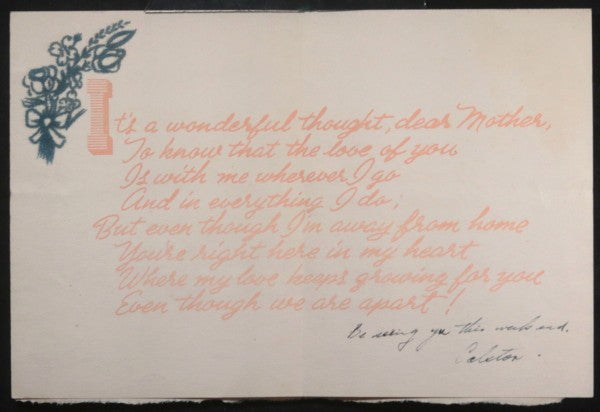 It's a wonderful thought, dear Mother,
To know that the love of you
Is with me wherever I go
And in everything I do;
But even though I'm away from home
You're right here in my heart
Where my love keeps growing for you
Even though we are apart!
Be seeing you this week end.